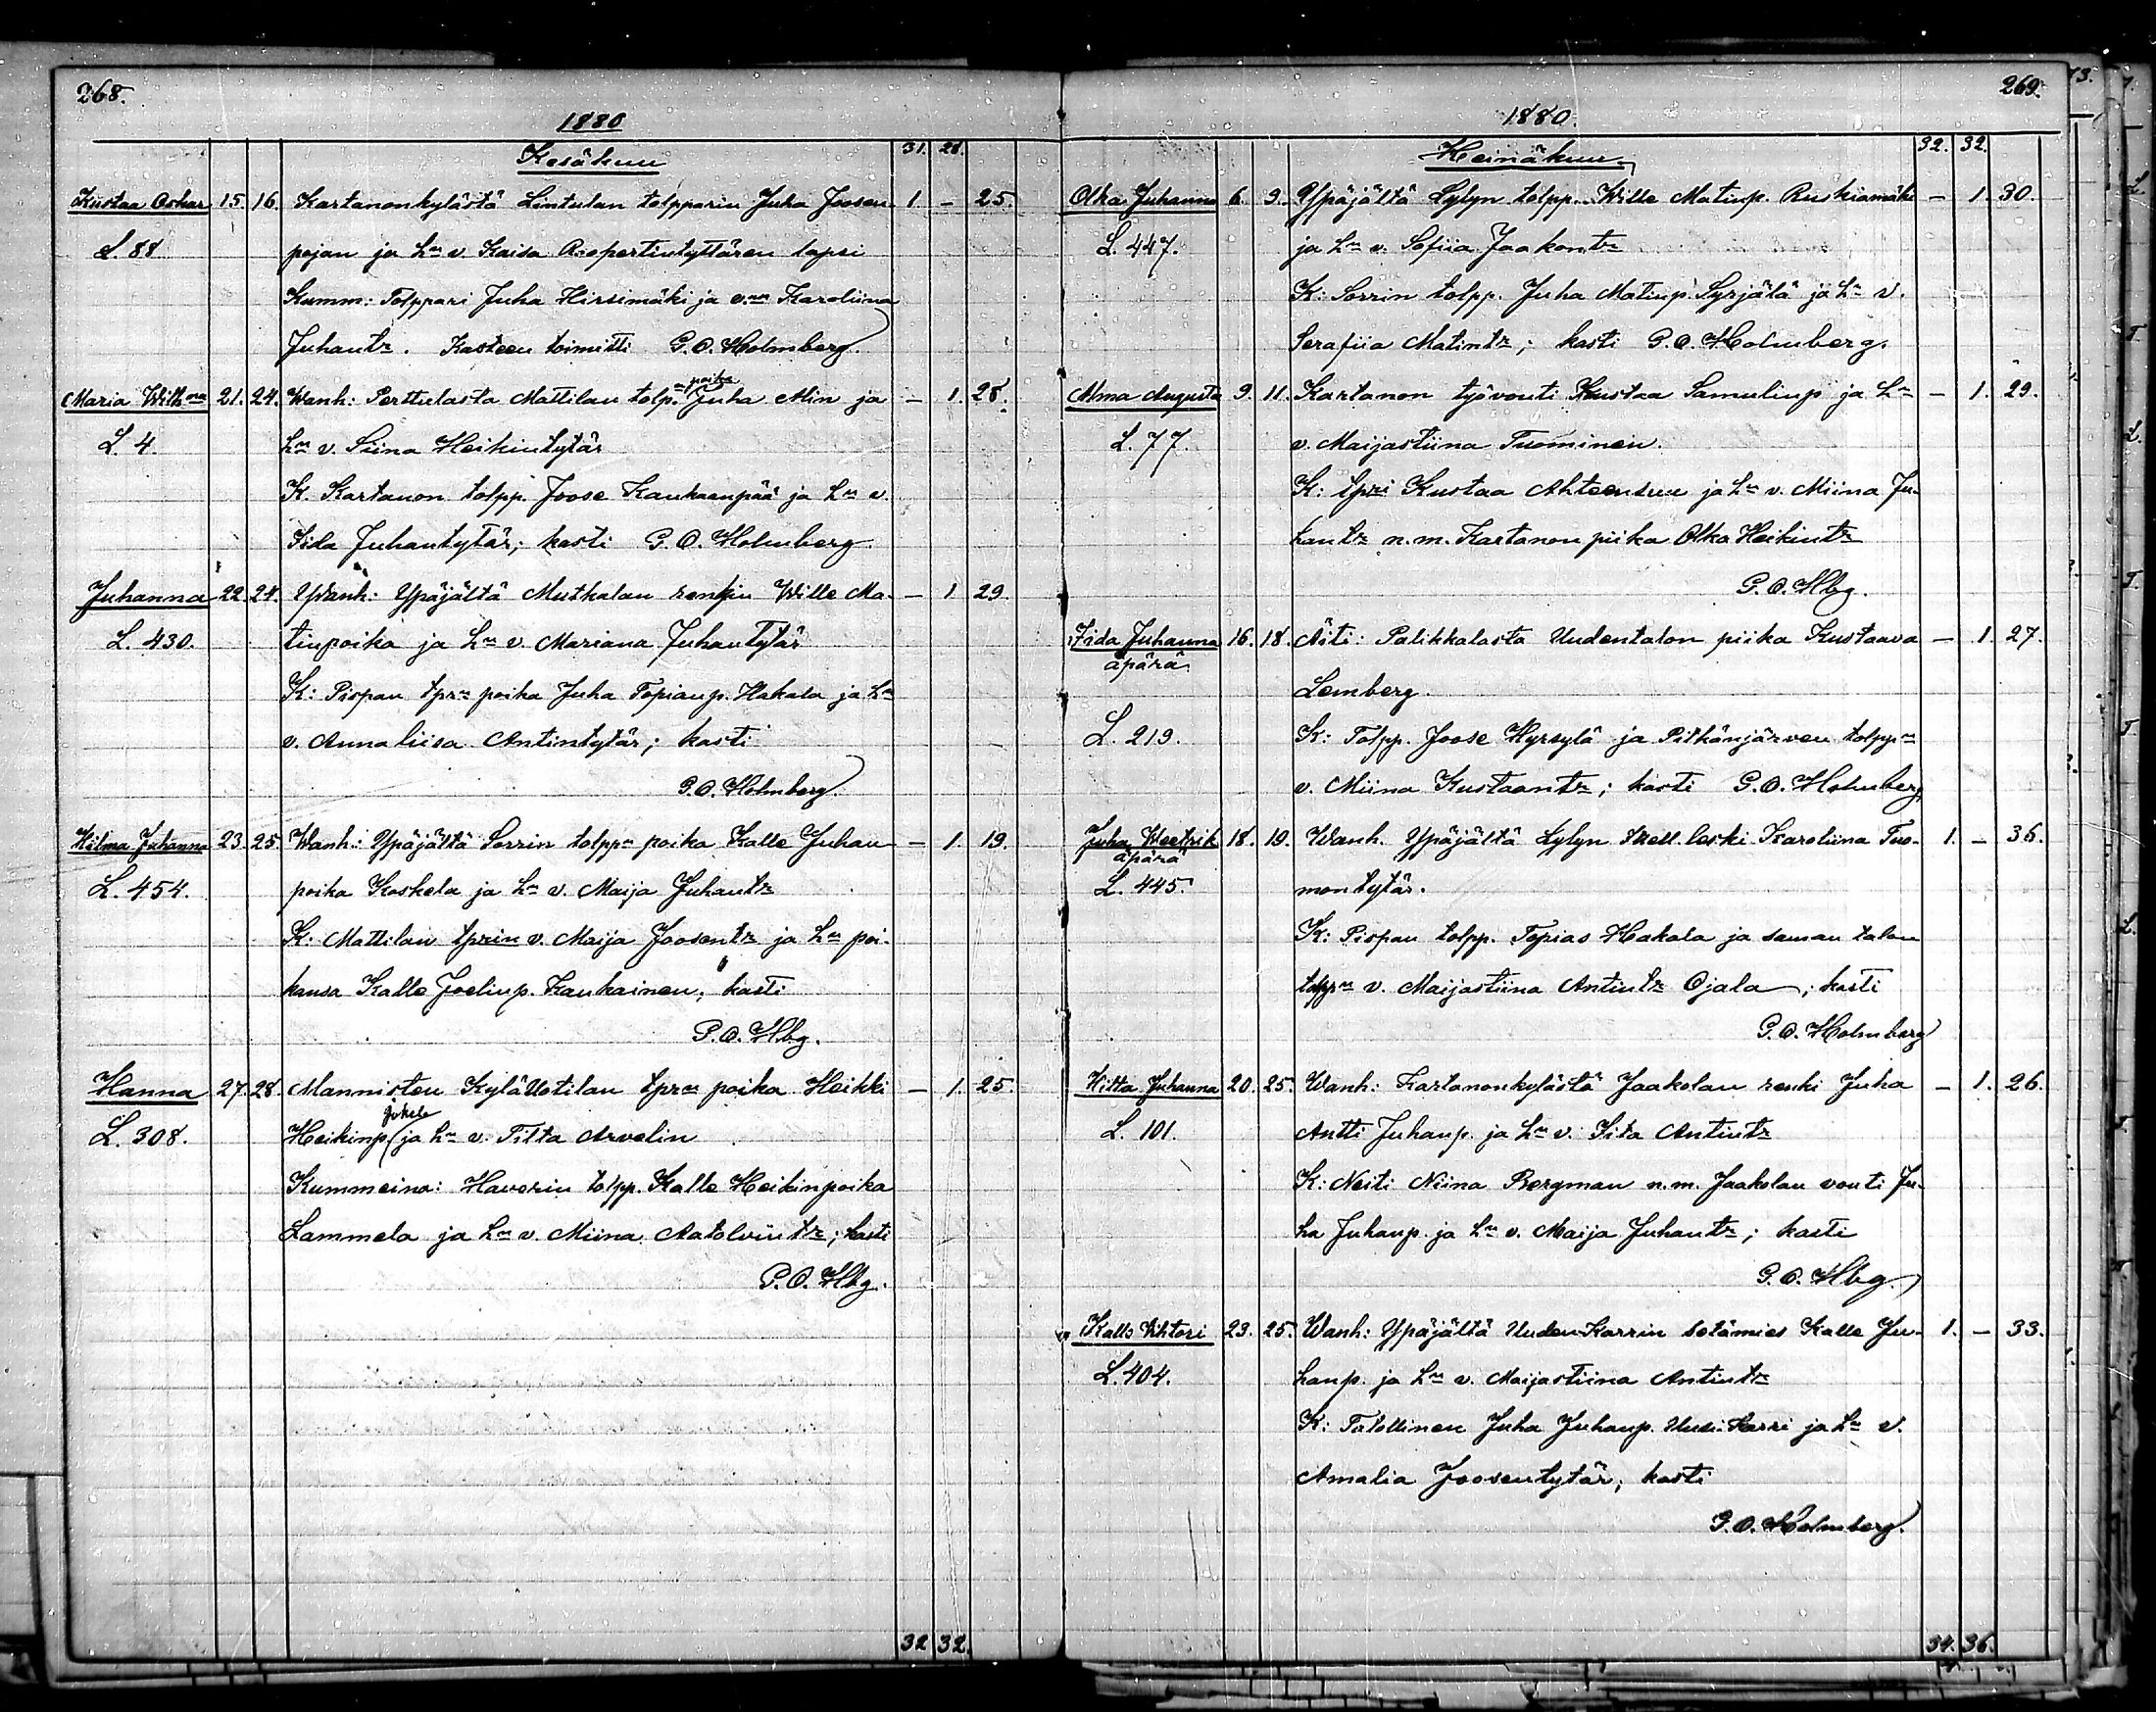 268.
1880
Kesäkuu 31. 28.
Kustaa Oskar 15. 16. Kartanonkylästä Lintulan tolpparin Juha Joosen 1 - 25.
L. 88 pojan ja hn v. Kaisa Ropertintyttären lapsi
Kumm: Tolppari Juha Hirsimäki ja v:nn Karoliina
Juhantr. Kasteen toimitti G. O. Holmberg.
Maria Wilh:na 21. 24. Wanh: Perttulasta Mattilan tolp.n poika Juha Min ja - 1. 28.
L. 4. hn v. Siina Heikintytär
K. Kartanon tolpp. Joose Kaukaanpää ja hn v.
Iida Juhantytär; kasti G. O. Holmberg.
Juhanna 22. 24. Wanh: Ypäjältä Muthalan renkin Wille Ma- - 1 29.
L. 430. tinpoika ja hn v. Mariana Juhantytär
K: Pispan tprn poika Juha Topiaup. Hakala ja hn
v. Annaliisa Antintytär; kasti
G. O. Holmberg.
Hilma Juhanna 23. 25. Wanh.: Ypäjältä Sorrin tolppn poika Kalle Juhan - 1. 19.
L. 454. poika Koskela ja hn v. Maija Juhantr
K: Mattilan tprin v. Maija Joosentr ja hn poi-
kansa Kalle Joelinp. Kaukainen; kasti
G. O. Hbg.
Hanna 27. 28. Mannisten KyläUotilan tprn poika Heikki - 1. 25.
L. 308. Heikinp. Jokela ja hn v. Tilta Arvelin
Kummeina: Haverin tolpp. Kalle Heikinpoika
Lammela ja hn v. Miina Aatolviintr; kasti
G. O. Hbg.
32 32.
269.
1880.
Heinäkuu 32. 32.
Olka Juhanna 6. 9. Ypäjältä Lylyn tolpp. Wille Matinp. Ruskiamäki - 1. 30.
L. 447. ja hn v. Sofiia Jaakontr
K: Sorrin tolpp. Juha Matinp. Syrjälä ja hn v.
Serafiia Matintr; kasti G. O. Holmberg.
Alma Augusta 9. 11. Kartanon työvouti Kustaa Samulinp ja hn - 1. 29.
L. 77. v. Maijastiina Tuominen.
K: tpri Kustaa Ahteensuu ja hn v. Miina Ju-
hantr n. m. Kartanon piika Olka Heikintr
G. O. Hbg.
Iida Juhanna 16. 18. Äiti: Palikkalasta Uudentalon piika Kustaava - 1. 27.
äpärä
Lemberg.
L. 219. K: Tolpp. Joose Hyrsylä ja Pitkänjärven tolppn
v. Miina Kustaantr; kasti G. O. Holmberg
Juha Weetrik 18. 19. Wanh. Ypäjältä Lylyn leski Karoliina Tuo- 1. - 36.
äpärä
L. 445. montytär.
K: Pispan tolpp. Topias Hakala ja saman talon
tolppn v. Maijastiina Antintr Ojala; kasti
G. O. Holmberg
Hilta Juhanna 20. 25. Wanh: Kartanonkylästä Jaakolan renki Juha - 1. 26.
L. 101. Antti Juhanp. ja hn v. Iita Antintr
K: Neiti Niina Bergman n. m. Jaakolan vouti Ju-
ha Juhanp. ja hn v. Maija Juhantr; kasti
G. O. Hbg.
Kalle Vihtori 23. 25. Wanh: Ypäjältä Uuden-Karrin sotamies Kalle Ju- 1. - 33.
L. 404. hanp. ja hn v. Maijastiina Antintr
K: Talollinen Juha Juhanp. Uusi-Karri ja hn v.
Amalia Joosentytär; kasti
G. O. Holmberg.
34. 36.